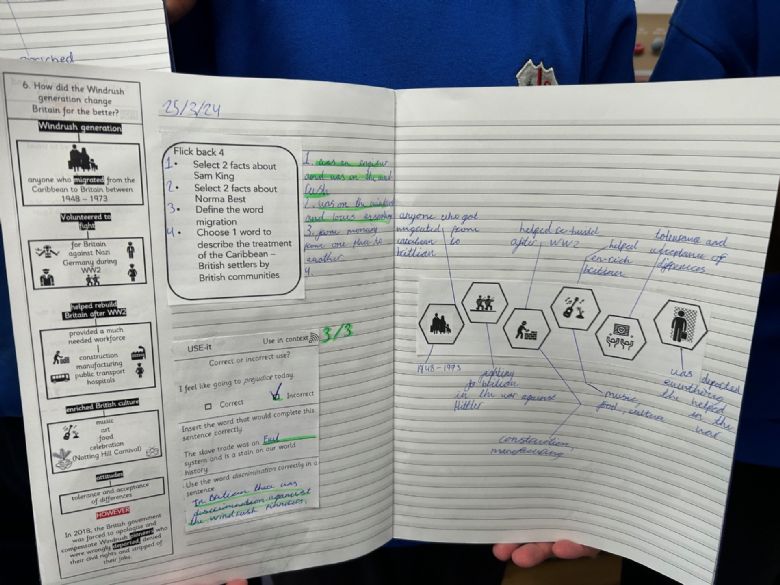 6. How did the Windrush
generation change
Britain for the better?
Windrush generation
anyone who migrated from the
Caribbean to Britain between
1948 – 1973
Volunteered to
fight
for Britain
against Nazi
Germany during
WW2
helped rebuild
Britain after WW2
provided a much
needed workforce
construction
manufacturing
public transport
hospitals
enriched British culture
music
art
food
celebration
(Notting Hill Carnival)
attitudes
tolerance and acceptance
of differences
HOWEVER
In 2018, the British government
was forced to apologise and
compensate Windrush pioneers who
were wrongly deported, denied
their civil rights and stripped of
their jobs.
25/3/24
Flick back 4
1. Select 2 facts about
Sam King
2. Select 2 facts about
Norma Best
3. Define the word
migration
4. Choose 1 word to
describe the treatment
of the Caribbean –
British settlers by
British communities
1. was an
and was on the
2. was on the
and
3. from
from one place to
another
4.
USE-it
Use in context
3/3
Correct or incorrect use?
I feel like going to prejudice today.
Correct
Incorrect
Insert the word that would complete this
sentence correctly
The slave trade was an Evil
system and is a stain on our world
history.
Use the word discrimination correctly in a
sentence
In was
discrimination against
the windrush
anyone who got
migrated from
to
helped
after WW2
helped
tolerance and
acceptance of
differences
1948-1973
in the war against
music,
food, culture
construction,
manufacturing
was deported
the helped
in the
war